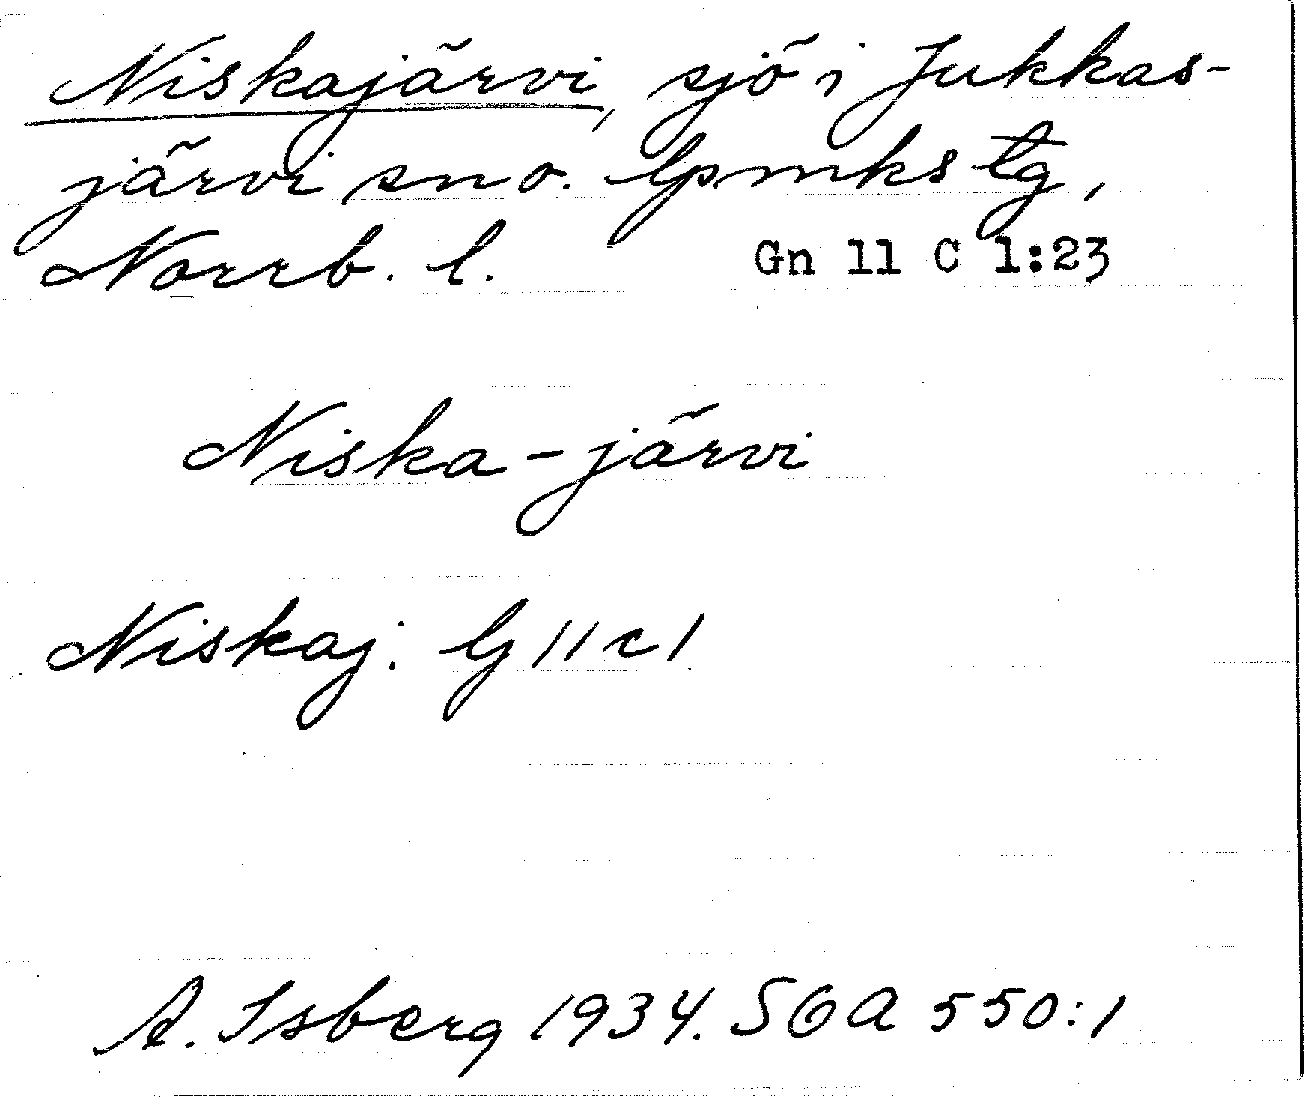 Niskajärvi, sjö i Jukkas-
järvi sn o. lpmks tg,
Norrb. l. Gn 11 C 1:23
Niska-järvi
Niskaj. G 11 c 1
A. Isberg 1934. SGA 550:1